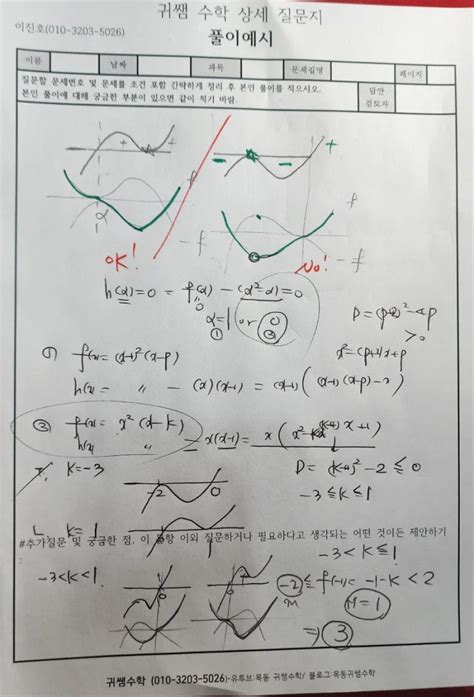 귀쌤 수학 상세 질문지
이진호(010-3203-5026)
풀이예시
이름 날짜 과목 문제집명 페이지
질문할 문제번호 및 문제를 조건 포함 간략하게 정리 후 본인 풀이를 적으시오.
본인 풀이에 대해 궁금한 부분이 있으면 같이 적기 바람.
답안
검토자
+ + - - +
α -f f -f f
OK! No!
h(α)=0 = f(α) - (α²-α)=0
α=1 or 0
① ②
D=(p+2)²-4p
>0
① f(x)=(x-1)²(x-p)
x²=(p+2)x+p
h(x)= 〃 - (x)(x-1) = (x-1)((x-1)(x-p)-x)
② f(x)= x²(x-k)
h(x) 〃 - x(x-1) = x(x²-(k+1)x+1)
K=-3
D= (k+1)²-2 ≤ 0
-2 0
-3≤k≤1
ㄴ K=1
#추가질문 및 궁금한 점. 이 항 이외 질문하거나 필요하다고 생각되는 어떤 것이든 제안하기
:
-3<k≤1
-3<k<1
-2≤f(-1)=-1-k<2
m M=1
⇒ 3
귀쌤수학 (010-3203-5026)-유투브:목동 귀쌤수학/ 블로그:목동귀쌤수학